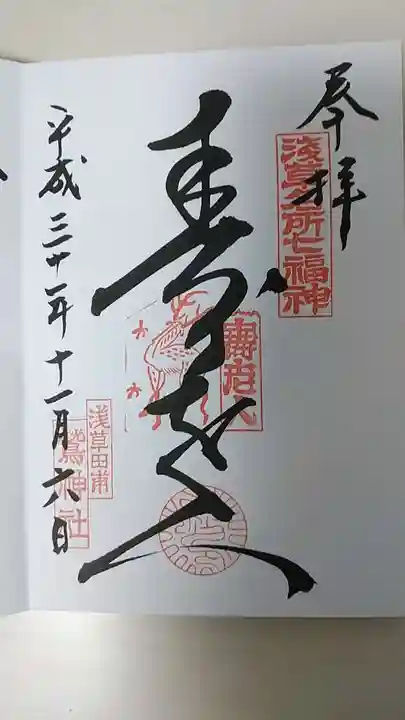 奉拝
淺草名所七福神
寿老人
壽老人
平成三十一年十一月六日
浅草田甫
鷲神社